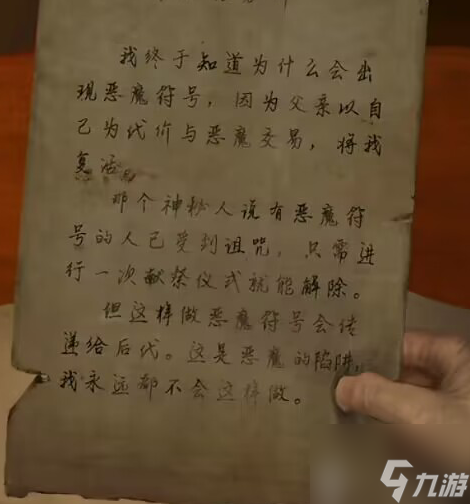 我终于知道为什么会出
现恶魔符号，因为父亲以自
己为代价与恶魔交易，将我
复活。
那个神秘人说有恶魔符
号的人已受到诅咒，只需进
行一次献祭仪式就能解除。
但这样做恶魔符号会传
递给后代。这是恶魔的陷阱，
我永远都不会这样做。
九游